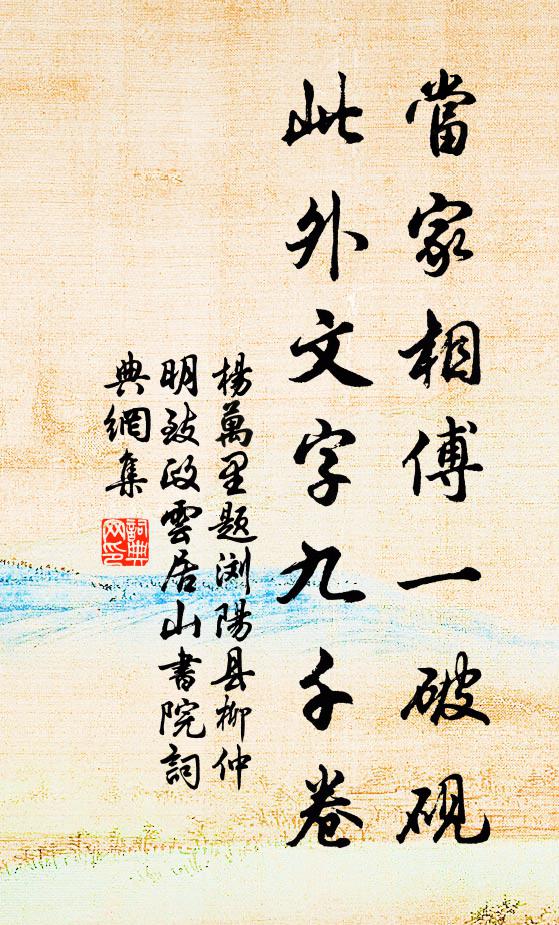 當家相傅一破硯
此外文字九千卷
楊萬里題浏陽县柳仲
明致政雲居山書院詞
典網集
詞典
网印